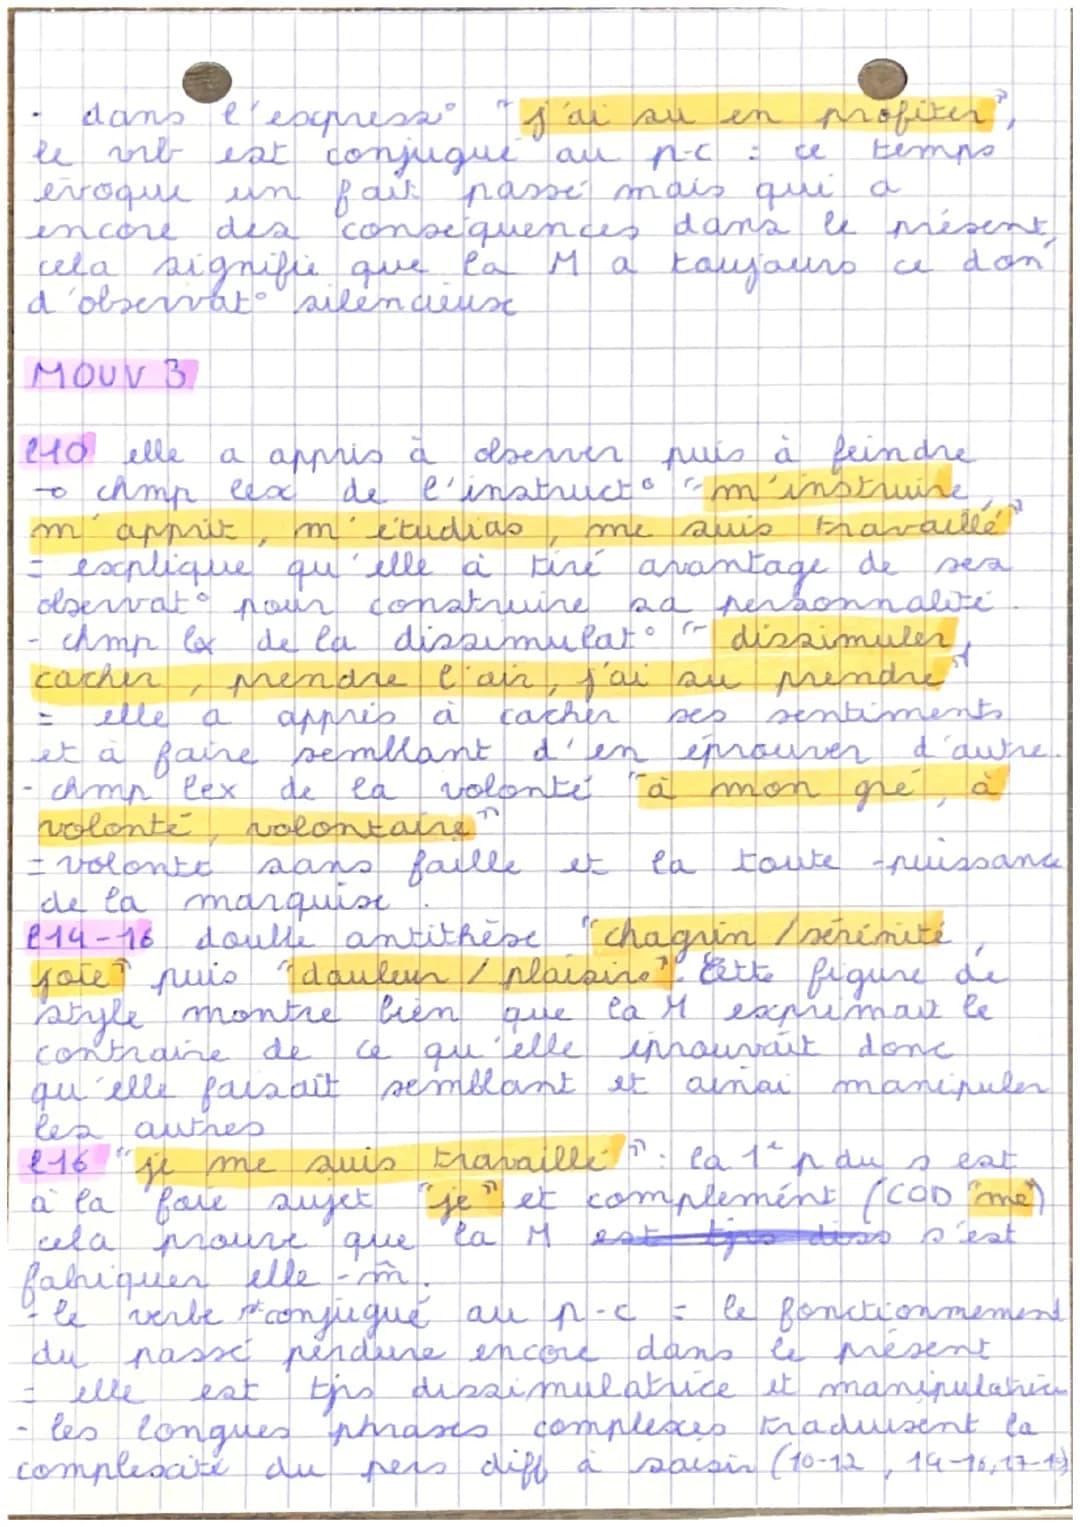 - dans l'express° "j'ai su en profiter",
le vrb est conjugué au p-c = ce temps
évoque un fait passé mais qui a
encore des conséquences dans le présent,
cela signifie que la M a toujours ce don
d'observat° silencieuse
MOUV 3
l10 elle a appris à observer puis à feindre
→ chmp lex de l'instruct° "m'instruire,
m'apprit, m'étudias, me suis travaillé"
= explique qu'elle a tiré avantage de ses
observat° pour construire sa personnalité.
- chmp lex de la dissimulat° "dissimuler,
cacher, prendre l'air, j'ai su prendre"
= elle a appris à cacher ses sentiments
et à faire semblant d'en éprouver d'autre.
- chmp lex de la volonté "à mon gré, à
volonté, volontaire"
= volonté sans faille et la toute-puissance
de la marquise.
l14-16 double antithèse "chagrin / sérénité,
joie" puis "douleur / plaisir". Cette figure de
style montre bien que la M exprimait le
contraire de ce qu'elle éprouvait donc
qu'elle faisait semblant et ainsi manipuler
les autres
l16 "je me suis travaillé" : la 1e p du s est
à la fois sujet "je" et complément (COD "me")
cela prouve que la M est tjrs diss s'est
fabriquer elle-m̂.
- le verbe conjugué au p-c = le fonctionnement
du passé perdure encore dans le présent
= elle est tjrs dissimulatrice et manipulatrice
- les longues phrases complexes traduisent la
complexité du pers diff à saisir (10-12, 14-16, 17-19)